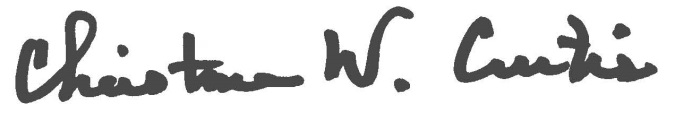 Christmon W. Curtis